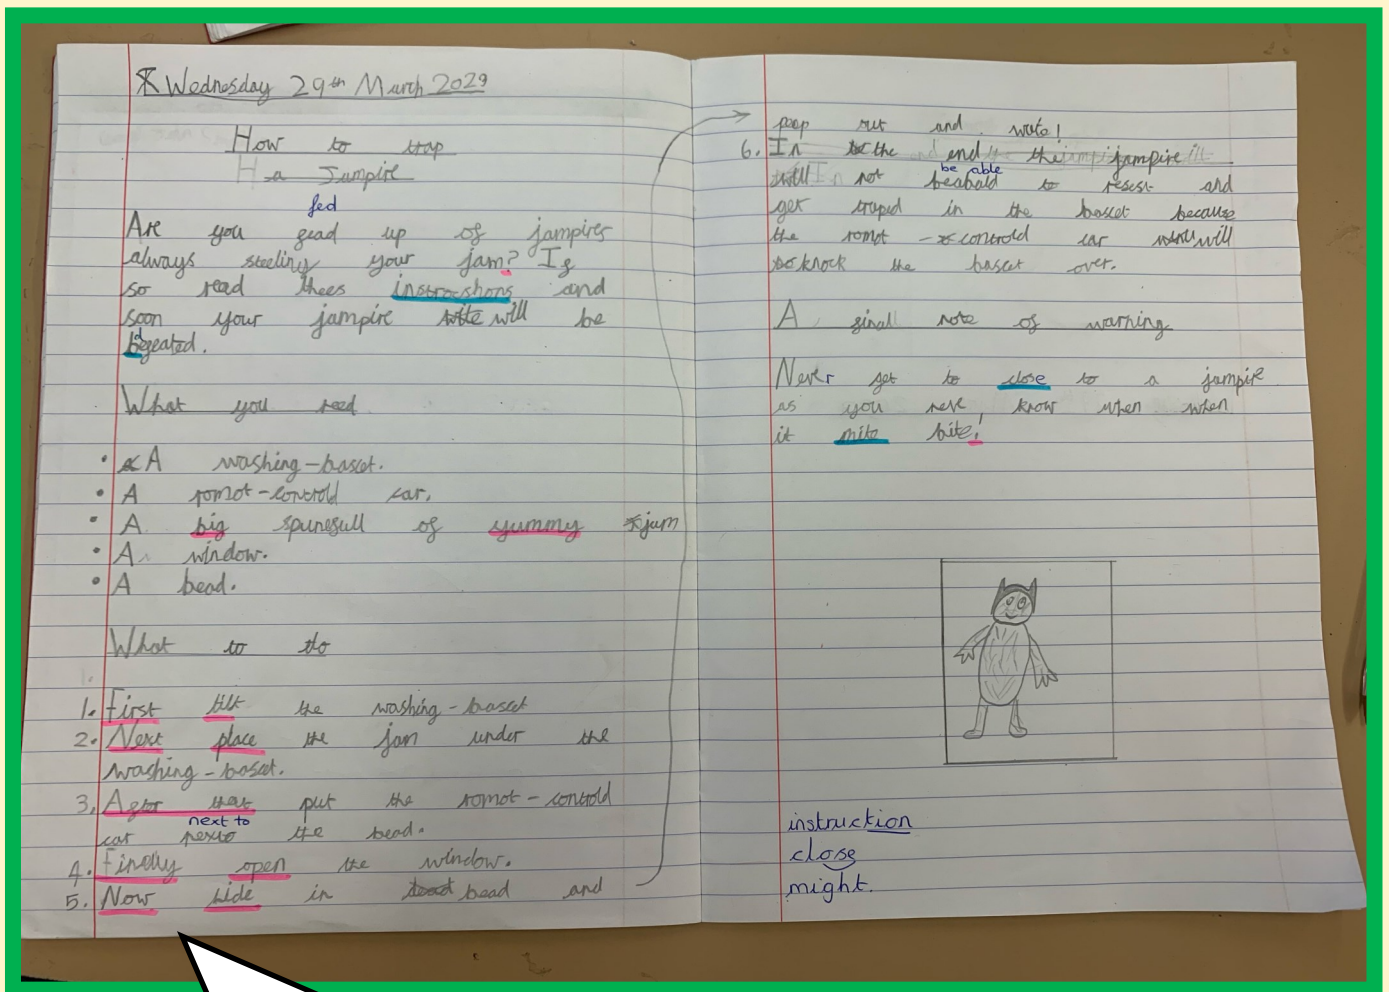 Wednesday 29th March 2029
How to trap
a Jampire
fed
Are you gead up of jampires
always steeling your jam? If
so read thees instrocshons and
soon your jampire will be
defeated.
What you need
• A washing-bascet.
• A romot-controld car.
• A big spunefull of yummy jam
• A window.
• A bead.
What to do
1. First tilt the washing-bascet
2. Next place the jam under the
washing-bascet.
3. After that put the romot-controld
next to
car nexto the bead.
4. Finally open the window.
5. Now hide in bead and
peep out and wate!
6. In the end the jampire
be able
will not beabald to resest and
get traped in the bascet because
the romot-controld car will
knock the bascet over.
A final note of warning
Never get to close to a jampire
as you neve know when when
it mite bite!
instruction
close
might.